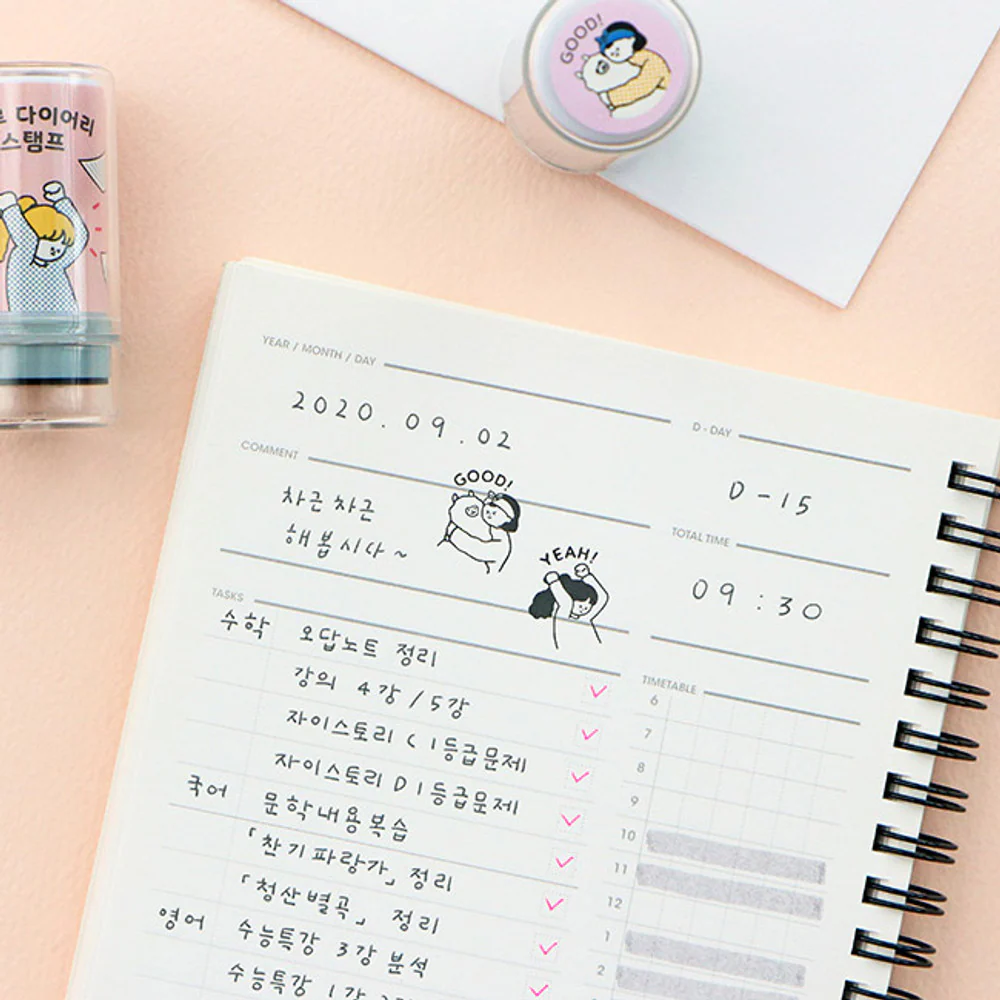 다이어리
스탬프
GOOD!
YEAH / MONTH / DAY
2020.09.02
D-DAY
D-15
COMMENT
차근차근
해봅시다~
GOOD!
YEAH!
TOTAL TIME
09:30
TASKS
수학 오답노트 정리
강의 4강/5강
자이스토리 C 1등급문제
자이스토리 D 1등급문제
국어 문학내용복습
「찬기파랑가」 정리
「청산별곡」 정리
영어 수능특강 3강 분석
수능특강 1강
TIMETABLE
6
7
8
9
10
11
12
1
2